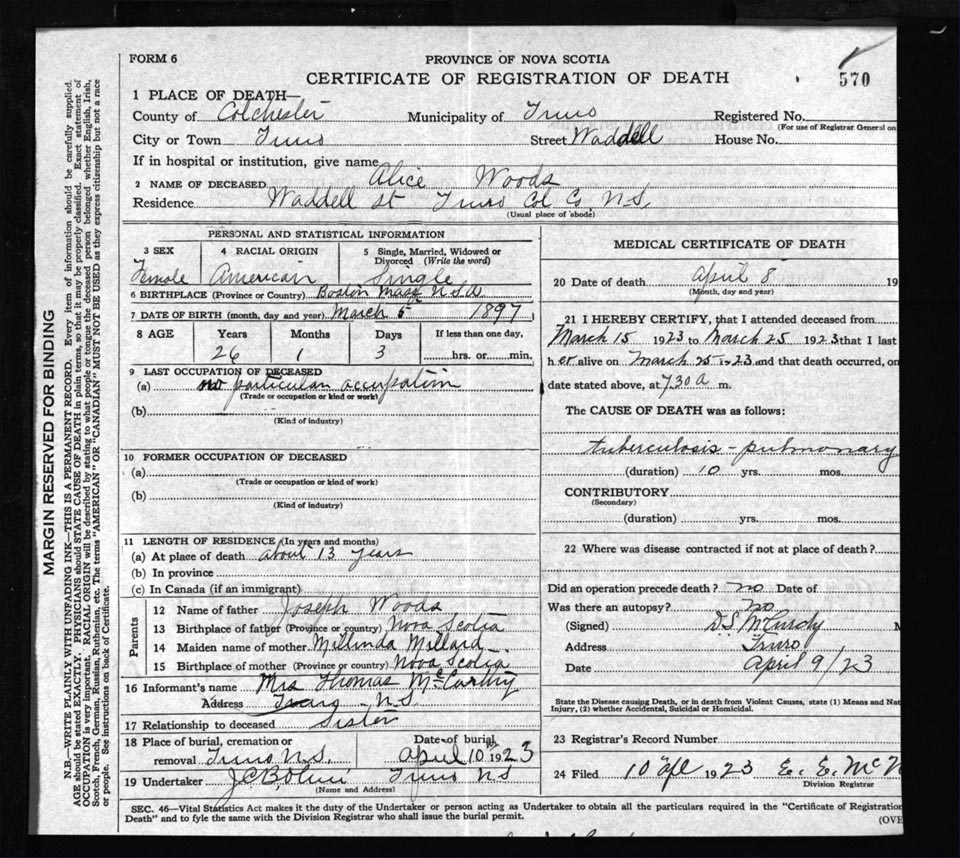 FORM 6
PROVINCE OF NOVA SCOTIA
CERTIFICATE OF REGISTRATION OF DEATH
570
1 PLACE OF DEATH—
County of Colchester Municipality of Truro Registered No.
(For use of Registrar General on
City or Town Truro Street Waddell House No.
If in hospital or institution, give name
2 NAME OF DECEASED Alice Woods
Residence Waddell St Truro Col Co. N.S.
(Usual place of abode)
PERSONAL AND STATISTICAL INFORMATION
3 SEX 4 RACIAL ORIGIN 5 Single, Married, Widowed or Divorced (Write the word)
Female American Single
6 BIRTHPLACE (Province or Country) Boston Mass U.S.A
7 DATE OF BIRTH (month, day and year) March 5 1897
8 AGE Years Months Days If less than one day,
26 1 3 hrs. or min.
9 LAST OCCUPATION OF DECEASED
(a) no particular occupation
(Trade or occupation or kind or work)
(b)
(Kind of industry)
10 FORMER OCCUPATION OF DECEASED
(a)
(Trade or occupation or kind or work)
(b)
(Kind of industry)
11 LENGTH OF RESIDENCE (In years and months)
(a) At place of death about 13 years
(b) In province
(c) In Canada (if an immigrant)
Parents
12 Name of father Joseph Woods
13 Birthplace of father (Province or country) Nova Scotia
14 Maiden name of mother Millinda Millard
15 Birthplace of mother (Province or country) Nova Scotia
16 Informant's name Mrs Thomas McCarthy
Address Truro N.S.
17 Relationship to deceased Sister
18 Place of burial, cremation or removal Truro N.S. Date of burial April 10th 1923
19 Undertaker Truro N S
(Name and Address)
MEDICAL CERTIFICATE OF DEATH
20 Date of death April 8 19
(Month, day and year)
21 I HEREBY CERTIFY, that I attended deceased from
March 15 1923 to March 25 1923 that I last
h er alive on March 25 1923 and that death occurred, on
date stated above, at 7.30 a m.
The CAUSE OF DEATH was as follows:
tuberculosis - pulmonary
(duration) 10 yrs. mos.
CONTRIBUTORY
(Secondary)
(duration) yrs. mos.
22 Where was disease contracted if not at place of death?
Did an operation precede death? no Date of
Was there an autopsy? no
(Signed) D.S McCurdy M
Address Truro
Date April 9/23
State the Disease causing Death, or in death from Violent Causes, state (1) Means and Nat
Injury, (2) whether Accidental, Suicidal or Homicidal.
23 Registrar's Record Number
24 Filed 10 Apl 1923 E. E. McN
Division Registrar
SEC. 46—Vital Statistics Act makes it the duty of the Undertaker or person acting as Undertaker to obtain all the particulars required in the "Certificate of Registration
Death" and to fyle the same with the Division Registrar who shall issue the burial permit.
(OVE
MARGIN RESERVED FOR BINDING
N.B.—WRITE PLAINLY WITH UNFADING INK—THIS IS A PERMANENT RECORD. Every item of information should be carefully supplied.
AGE should be stated EXACTLY. PHYSICIANS should STATE CAUSE OF DEATH in plain terms, so that it may be properly classified. Exact statement of
OCCUPATION is very important. RACIAL ORIGIN will be described by stating to what people or tongue the deceased person belonged whether English, Irish,
Scotch, French, German, Russian, Ruthenian, etc. The terms "AMERICAN" OR "CANADIAN" MUST NOT BE USED as they express citizenship but not a race
or people. See instructions on back of Certificate.